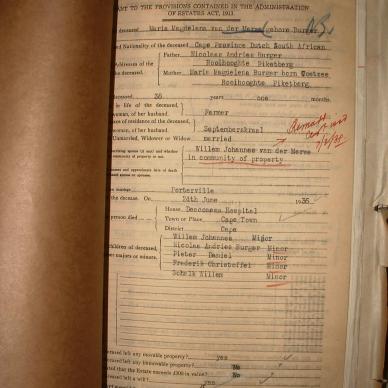 ANT TO THE PROVISIONS CONTAINED IN THE ADMINISTRATION
OF ESTATES ACT, 1913.
deceased Maria Magdelena van der Merwe gebore Burger
nd Nationality of the deceased Cape Province Dutch South African
Father Nicolaas Andries Burger
Addresses of the Rooihoogte Piketberg
he deceased. Mother Maria Magdelena Burger born Coetzee
Rooihoogte Piketberg
deceased 36 years one months.
in life of the deceased,
woman, of her husband Farmer
ace of residence of the deceased,
woman, of her husband Septemberskraal
Unmarried, Widower or Widow married
Willem Johannes van der Merwe
in community of property
Porterville
the decease. On 24th June 1935
House Deaconess Hospital
person died Town or Place, Cape Town
District Cape
Willem Johannes Minor
children of deceased, Nicolas Andries Burger Minor
er majors or minors. Pieter Daniel Minor
Frederik Christoffel Minor
Schalk Willem Minor
ceased left any movable property? yes
ceased left any immovable property? No
ated that the Estate exceeds £300 in value? No
ceased left a will?